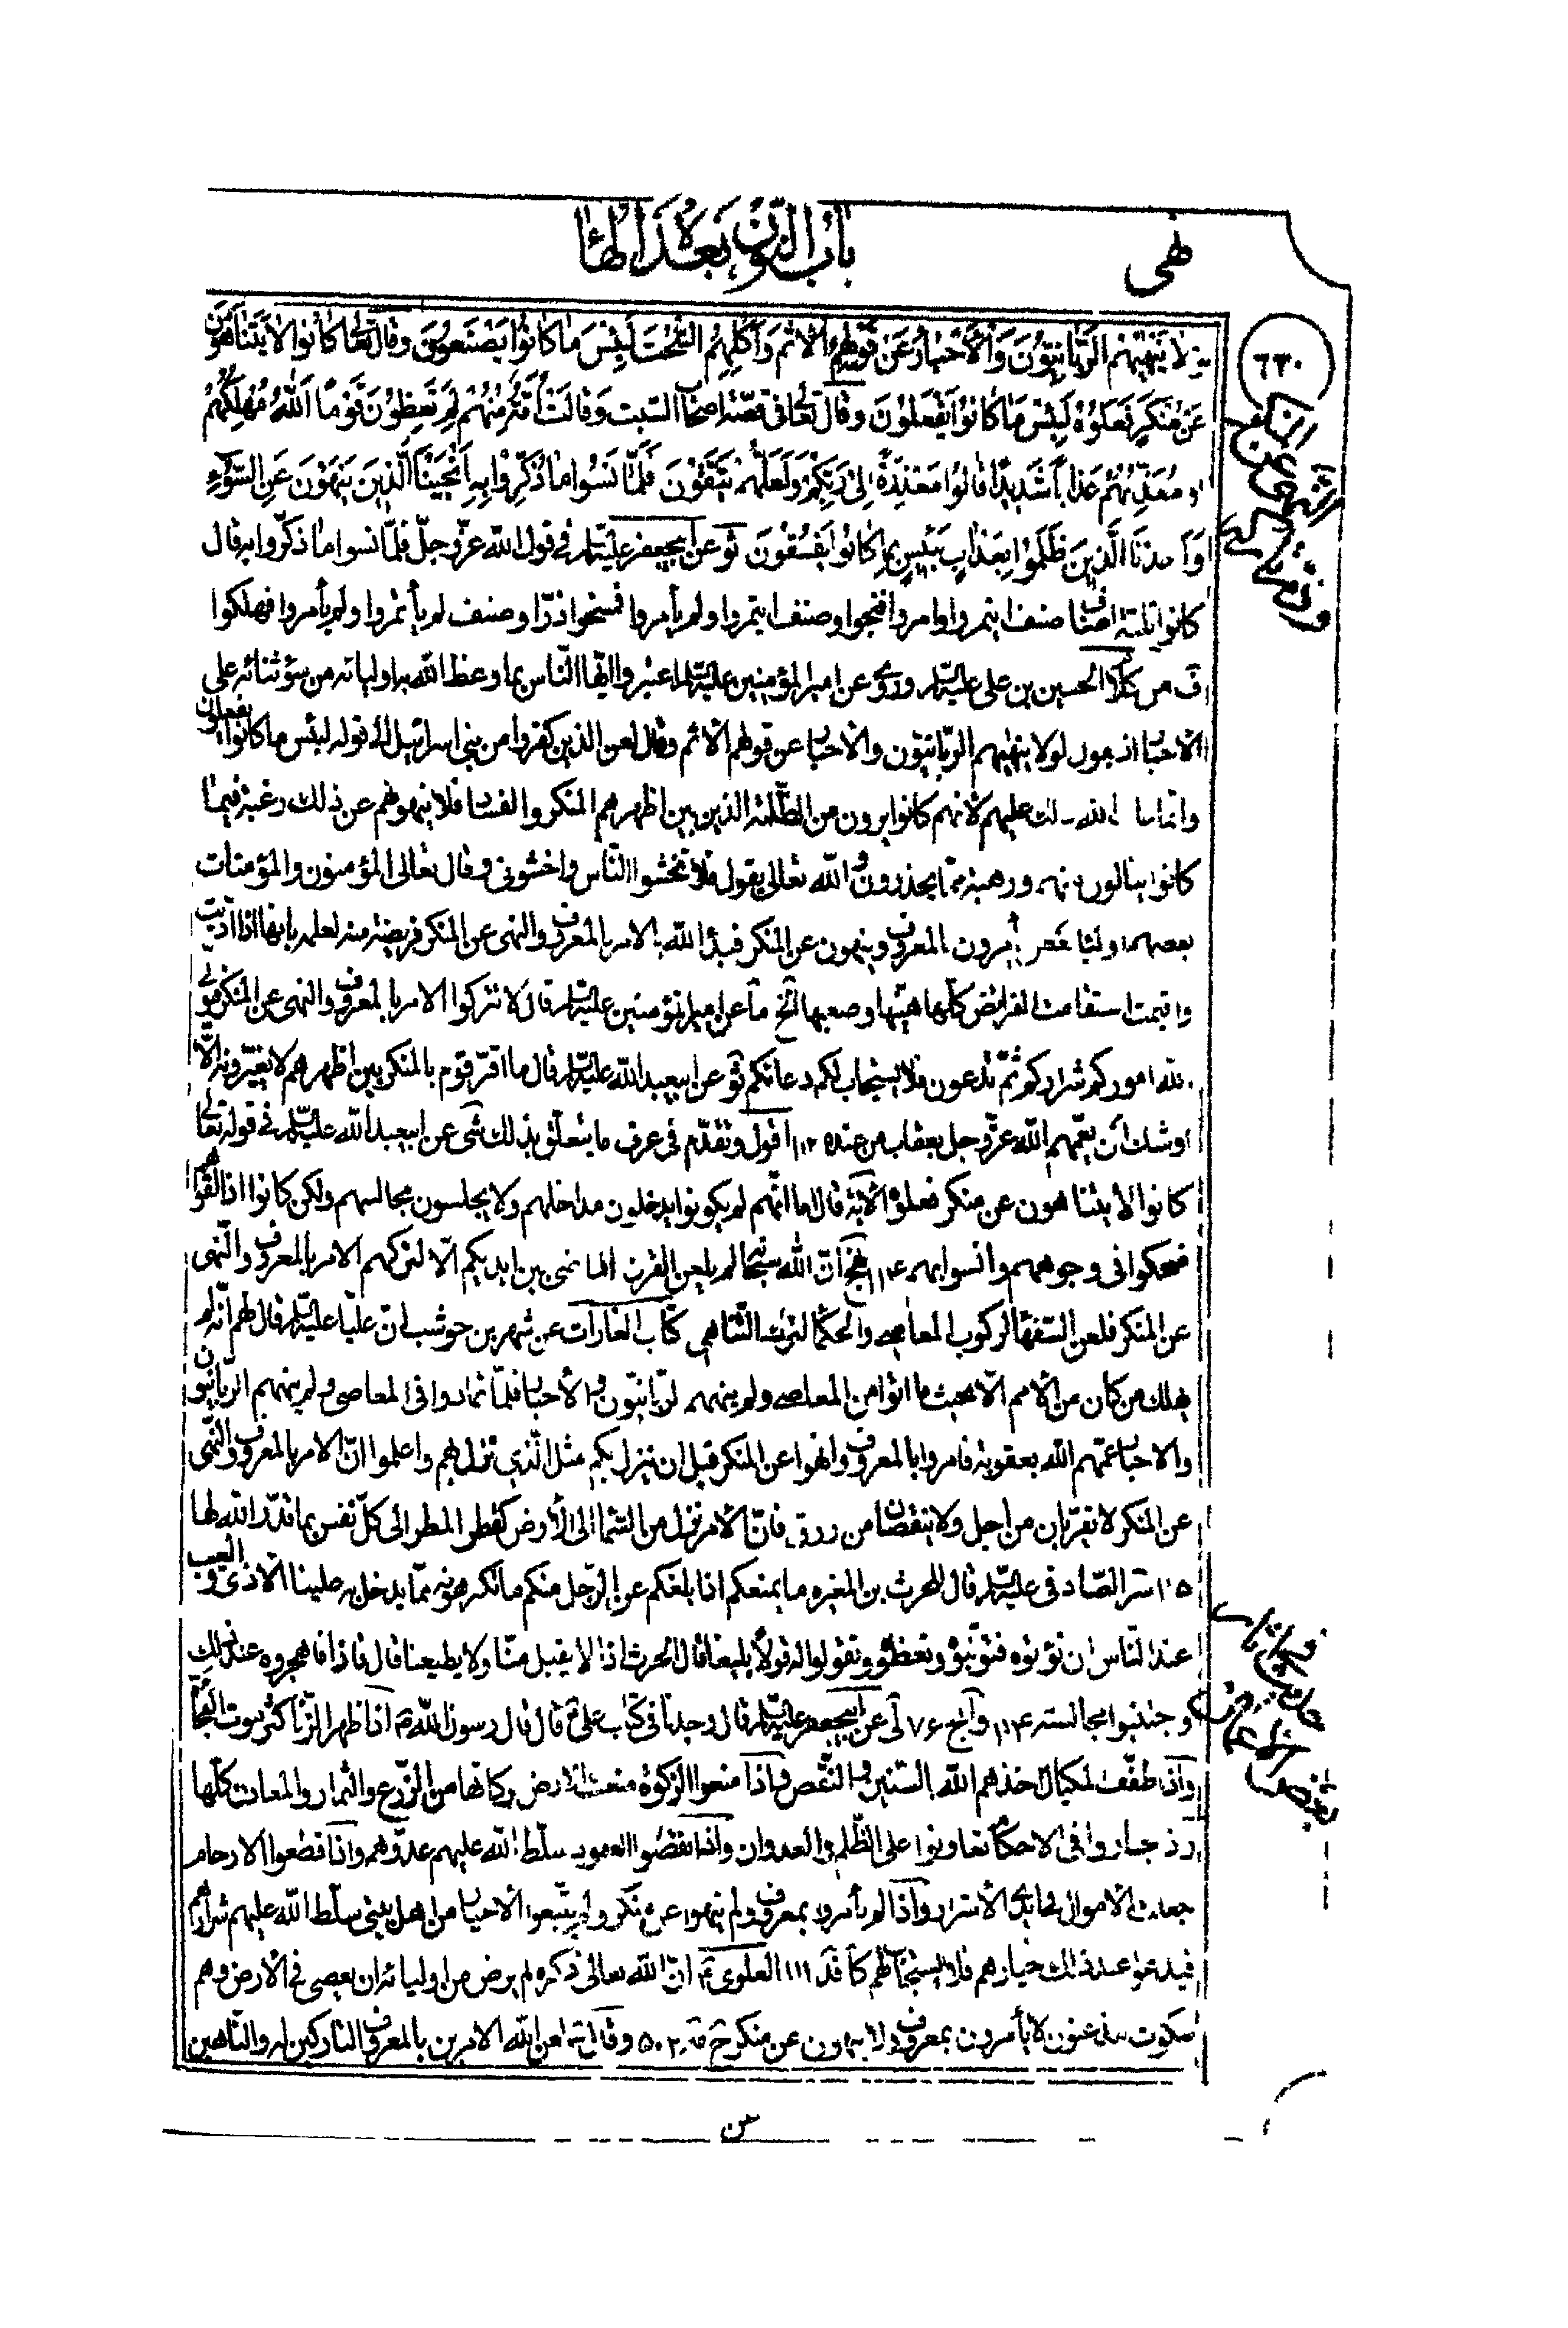 نهى
باب النون بعده الهاء
٦٣٠
النهى عن المنكر
لولا ينهيهم الربانيون والاحبار عن قولهم الاثم واكلهم السحت لبئس ما كانوا يصنعون وقال تعالى كانوا لا يتناهون
عن منكر فعلوه لبئس ما كانوا يفعلون وقال تعالى في قصة اصحاب السبت وقالت امة منهم لم تعظون قوما الله مهلكهم
او معذبهم عذابا شديدا قالوا معذرة الى ربكم ولعلهم يتقون فلما نسوا ما ذكروا به انجينا الذين ينهون عن السوء
واخذنا الذين ظلموا بعذاب بئيس بما كانوا يفسقون ثو عن ابيجعفر عليه السلام في قول الله عز وجل فلما نسوا ما ذكروا به قال
كانوا ثلثة اصناف صنف ائتمروا وامروا فنجوا وصنف ائتمروا ولم يأمروا فمسخوا ذرا وصنف لم يأتمروا ولم يأمروا فهلكوا
ف من كلام الحسين بن علي عليه السلام وروى عن امير المؤمنين عليه السلام اعتبروا ايها الناس بما وعظ الله به اولياءه من سوء ثنائه على
الاحبار اذ يقول لولا ينهيهم الربانيون والاحبار عن قولهم الاثم وقال لعن الذين كفروا من بني اسرائيل الى قوله لبئس ما كانوا يفعلون
وانما عاب الله ذلك عليهم لانهم كانوا يرون من الظلمة الذين بين اظهرهم المنكر والفساد فلا ينهونهم عن ذلك رغبة فيما
كانوا ينالون منهم ورهبة مما يحذرون والله تعالى يقول فلا تخشوا الناس واخشوني وقال تعالى المؤمنون والمؤمنات
بعضهم اولياء بعض يأمرون بالمعروف وينهون عن المنكر فبدأ الله بالامر بالمعروف والنهى عن المنكر فريضة منه لعلمه بانها اذا اديت
واقيمت استقامت الفرائض كلها هينها وصعبها الخ ما عن امير المؤمنين عليه السلام قال لا تتركوا الامر بالمعروف والنهى عن المنكر فيولى
الله اموركم شراركم ثم تدعون فلا يستجاب لكم دعائكم ثو عن ابيعبد الله عليه السلام قال ما اقر قوم بالمنكر بين اظهرهم لا يغيرونه الا
اوشك ان يعمهم الله عز وجل بعقاب من عنده ١١٢ اقول وتقدم في عرف ما يتعلق بذلك شى عن ابيعبد الله عليه السلام في قوله تعالى
كانوا لا يتناهون عن منكر فعلوه الآية قال اما انهم لم يكونوا يدخلون مداخلهم ولا يجلسون مجالسهم ولكن كانوا اذا لقوهم
ضحكوا في وجوههم وانسوا بهم ١١٤ نهج ان الله سبحانه لم يلعن القرن الماضي بين ايديكم الا لتركهم الامر بالمعروف والنهى
عن المنكر فلعن السفهاء لركوب المعاصى والحكماء لترك التناهي كتاب الغارات عن شهر بن حوشب ان عليا عليه السلام قال لهم انه لم
يهلك من كان من الامم الا بحيث ما اتوا من المعاصى ولم ينههم الربانيون والاحبار فلما تمادوا في المعاصى ولم ينههم الربانيون
والاحبار عمهم الله بعقوبة فامروا بالمعروف وانهوا عن المنكر قبل ان ينزل بكم مثل الذي نزل بهم واعلموا ان الامر بالمعروف والنهى
عن المنكر لا يقربان من اجل ولا ينقصان من رزق فان الامر ينزل من السماء الى الارض كقطر المطر الى كل نفس بما قدر الله لها
١٠٥ سر الصادق عليه السلام قال للحرث بن المغيره ما يمنعكم اذا بلغكم عن الرجل منكم ما تكرهونه مما يدخل به علينا الاذى والعيب
عند الناس ان تؤتوه فتؤنبوه وتعظوه وتقولوا له قولا بليغا قال الحرث اذا لا يقبل منا ولا يطيعنا قال فاذا فاهجروه عند ذلك
واجتنبوا مجالسته ١١٤ وآبح ٧٦ لى عن ابيجعفر عليه السلام قال وجدنا في كتاب علي ع قال قال رسول الله ص اذا ظهر الزنا كثر موت الفجأة
واذا طفف المكيال اخذهم الله بالسنين والنقص واذا منعوا الزكوة منعت الارض بركاتها من الزرع والثمار والمعادن كلها
واذا جاروا في الاحكام تعاونوا على الظلم والعدوان واذا نقضوا العهود سلط الله عليهم عدوهم واذا قطعوا الارحام
جعلت الاموال في ايدى الاشرار واذا لم يأمروا بمعروف ولم ينهوا عن منكر ولم يتبعوا الاخيار من اهل بيتي سلط الله عليهم شرارهم
فيدعوا عند ذلك خيارهم فلا يستجاب لهم كا قد ١١١ العلوى ع ان الله تعالى ذكره لم يرض من اوليائه ان يعصى في الارض وهم
سكوت مذعنون لا يأمرون بمعروف ولا ينهون عن منكر ح ٥٠٣ وقال ع لعن الله الآمرين بالمعروف التاركين له والناهين
عن